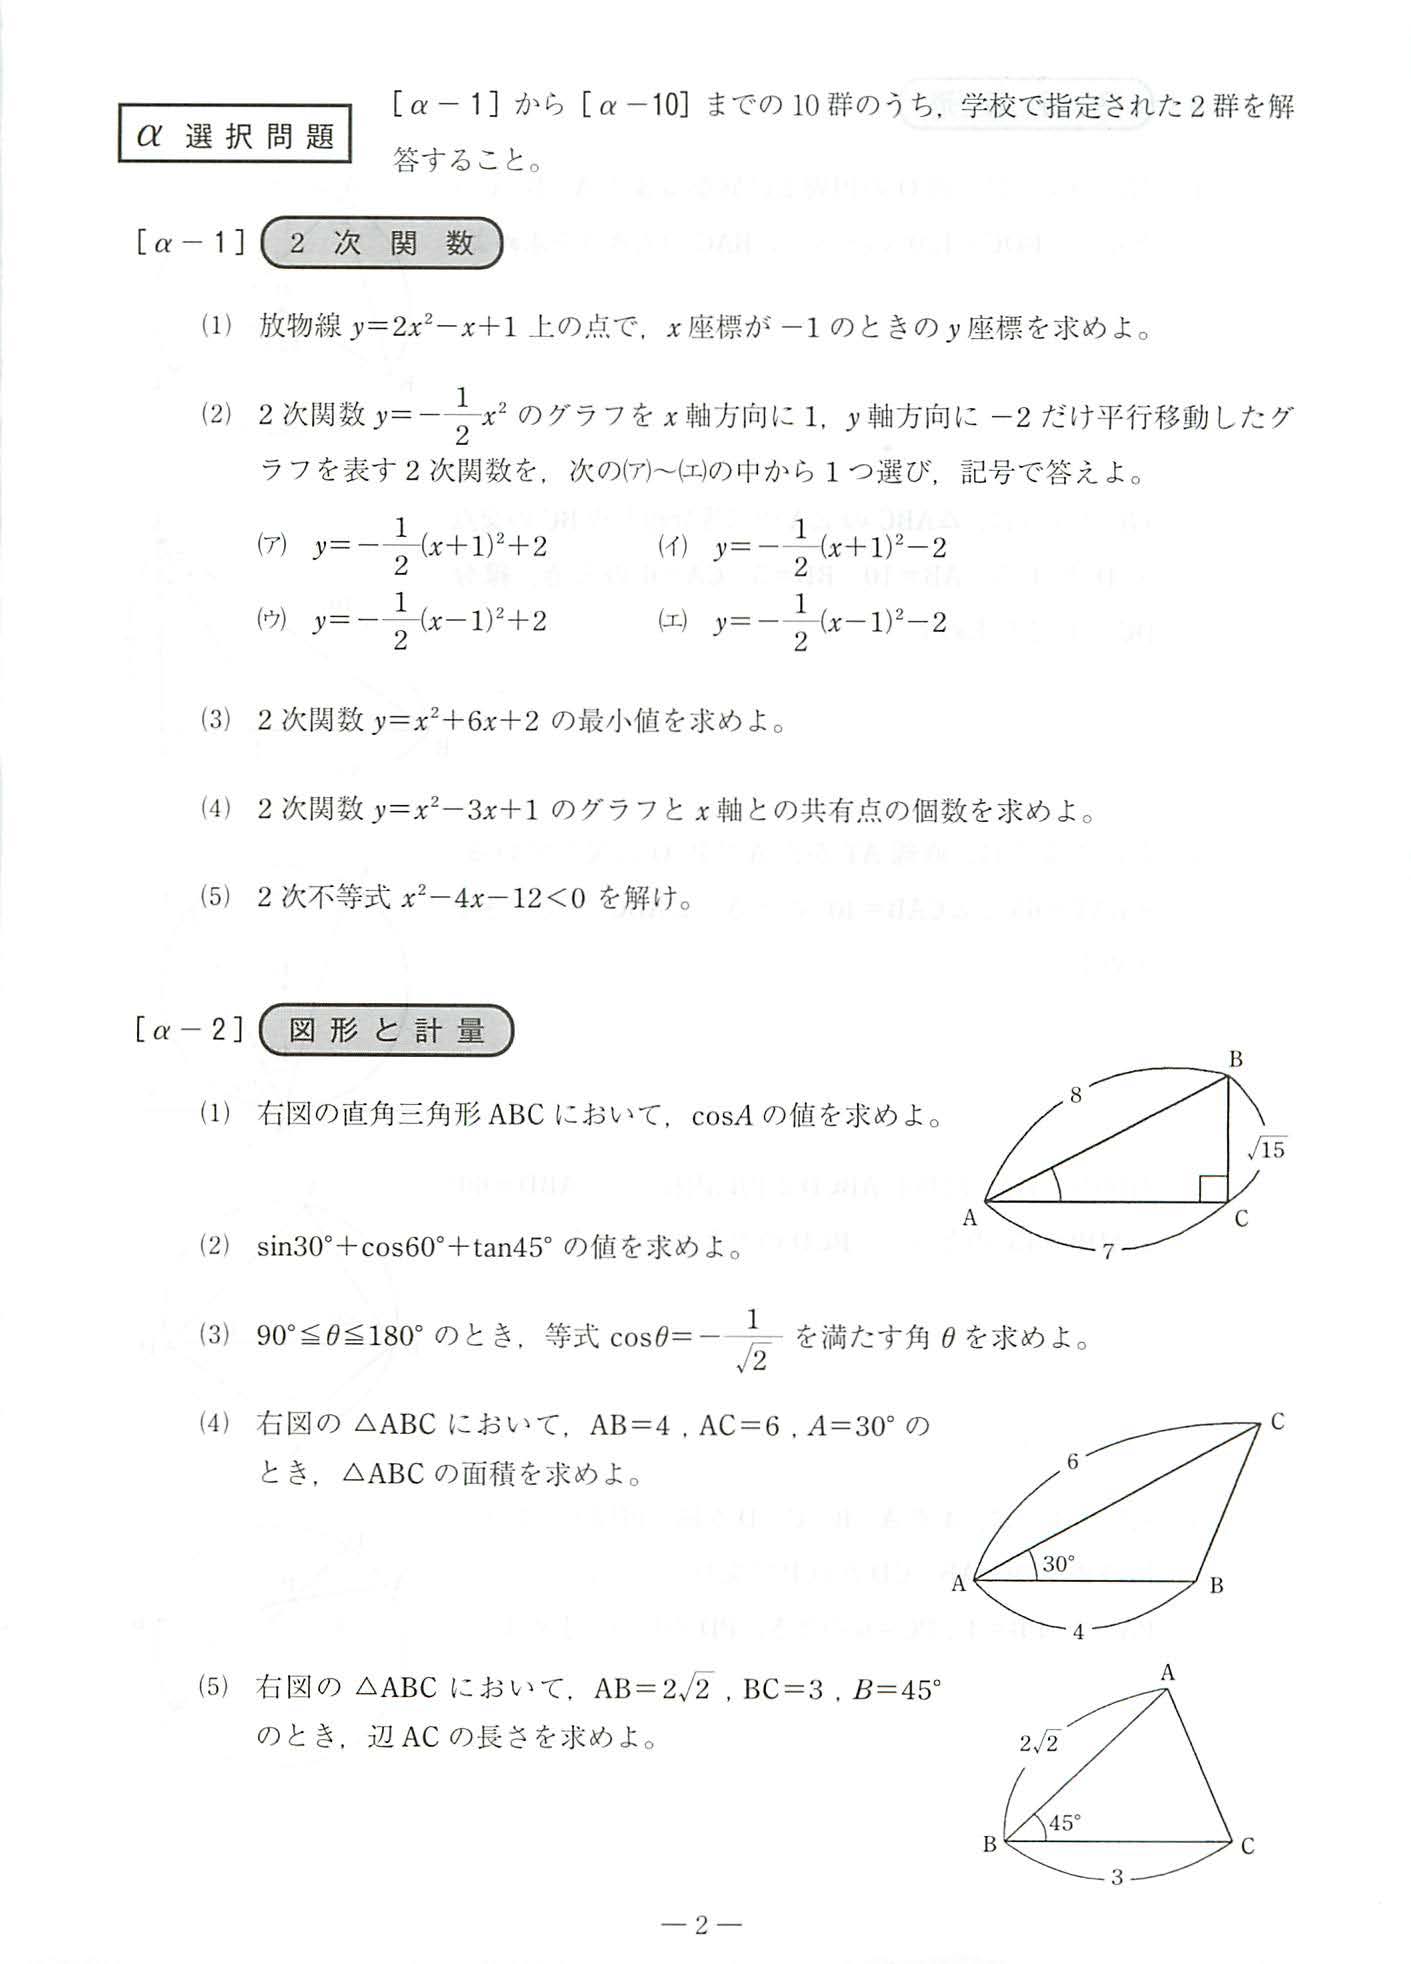 α 選択問題
[α－1] から [α－10] までの10群のうち，学校で指定された2群を解
答すること。
[α－1] 2次関数
(1) 放物線 y=2x²−x+1 上の点で，x座標が −1 のときの y座標を求めよ。
(2) 2次関数 y=−1/2x² のグラフを x軸方向に 1，y軸方向に −2 だけ平行移動したグ
ラフを表す2次関数を，次の(ア)～(エ)の中から1つ選び，記号で答えよ。
(ア) y=−1/2(x+1)²+2 (イ) y=−1/2(x+1)²−2
(ウ) y=−1/2(x−1)²+2 (エ) y=−1/2(x−1)²−2
(3) 2次関数 y=x²+6x+2 の最小値を求めよ。
(4) 2次関数 y=x²−3x+1 のグラフと x軸との共有点の個数を求めよ。
(5) 2次不等式 x²−4x−12<0 を解け。
[α－2] 図形と計量
(1) 右図の直角三角形ABCにおいて，cosA の値を求めよ。
B
8
√15
A
C
7
(2) sin30°+cos60°+tan45° の値を求めよ。
(3) 90°≦θ≦180° のとき，等式 cosθ=−1/√2 を満たす角 θ を求めよ。
(4) 右図の △ABC において，AB=4 , AC=6 , A=30° の
とき，△ABC の面積を求めよ。
C
6
30°
A
B
4
(5) 右図の △ABC において，AB=2√2 , BC=3 , B=45°
のとき，辺ACの長さを求めよ。
A
2√2
45°
B
C
3
― 2 ―